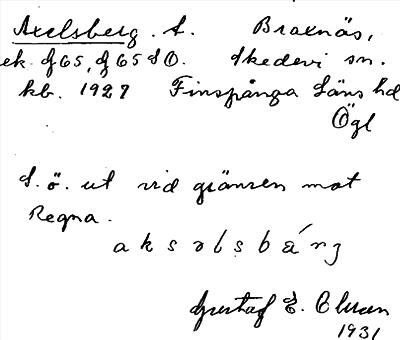 Axelsberg. t. Braxnäs,
ek. f 65, f 65 SO. Skedevi sn.
kb. 1927 Finspånga läns hd
Ögl
S. ö. ut vid gränsen mot
Regna.
aksəlsbárj
Gustaf E. Olsson
1931